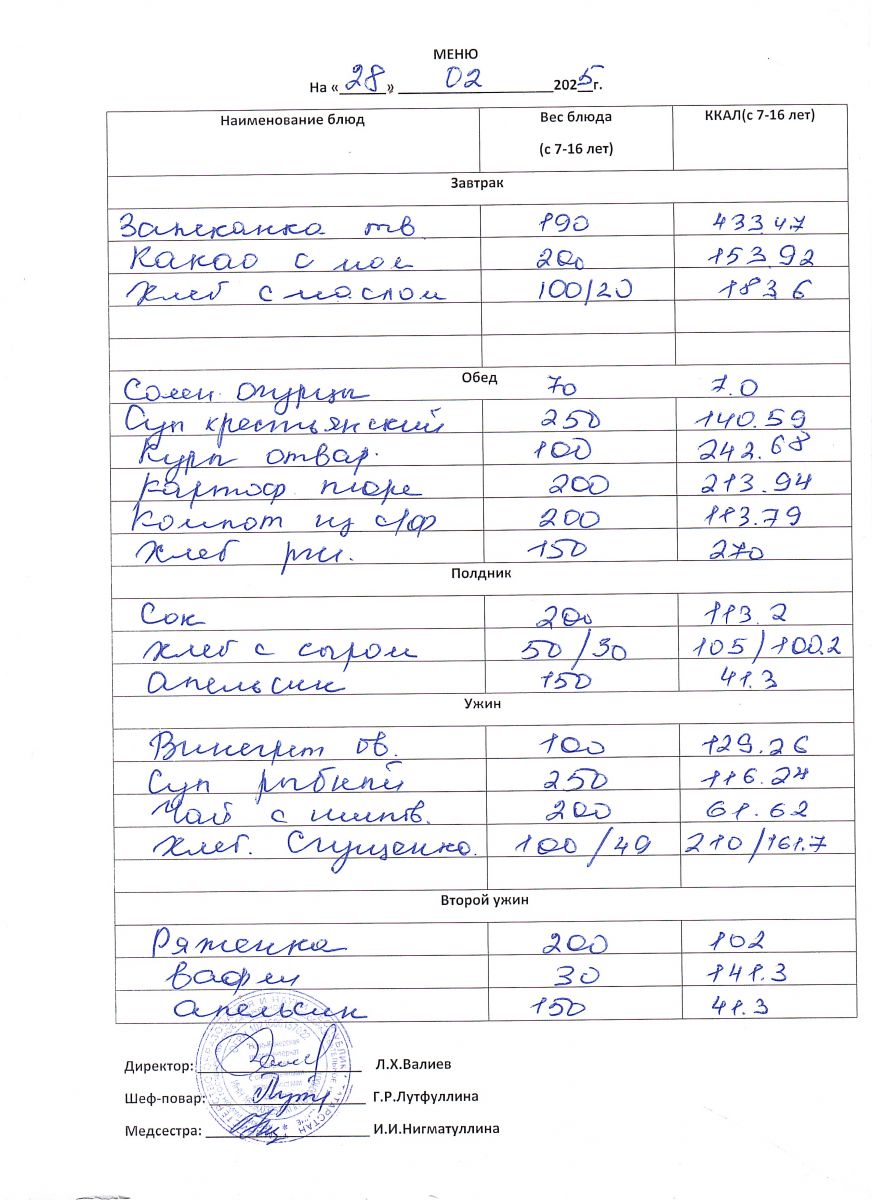 МЕНЮ
На «28» 02 2025г.
Наименование блюд Вес блюда (с 7-16 лет) ККАЛ(с 7-16 лет)
Завтрак
Запеканка тв 190 433.47
Какао с мол 200 153.92
Хлеб с маслом 100/20 183.6
Обед
Солен. огурцы 70 7.0
Суп крестьянский 250 140.59
Куры отвар. 100 242.68
Картоф. пюре 200 213.94
Компот из с/ф 200 113.79
Хлеб рж. 150 270
Полдник
Сок 200 113.2
Хлеб с сыром 50/30 105/100.2
Апельсин 150 41.3
Ужин
Винегрет ов. 100 129.26
Суп рыбный 250 116.24
Чай с шипов. 200 61.62
Хлеб. Сгущенка. 100/49 210/161.7
Второй ужин
Ряженка 200 102
Вафли 30 141.3
Апельсин 150 41.3
Директор: Л.Х.Валиев
Шеф-повар: Г.Р.Лутфуллина
Медсестра: И.И.Нигматуллина